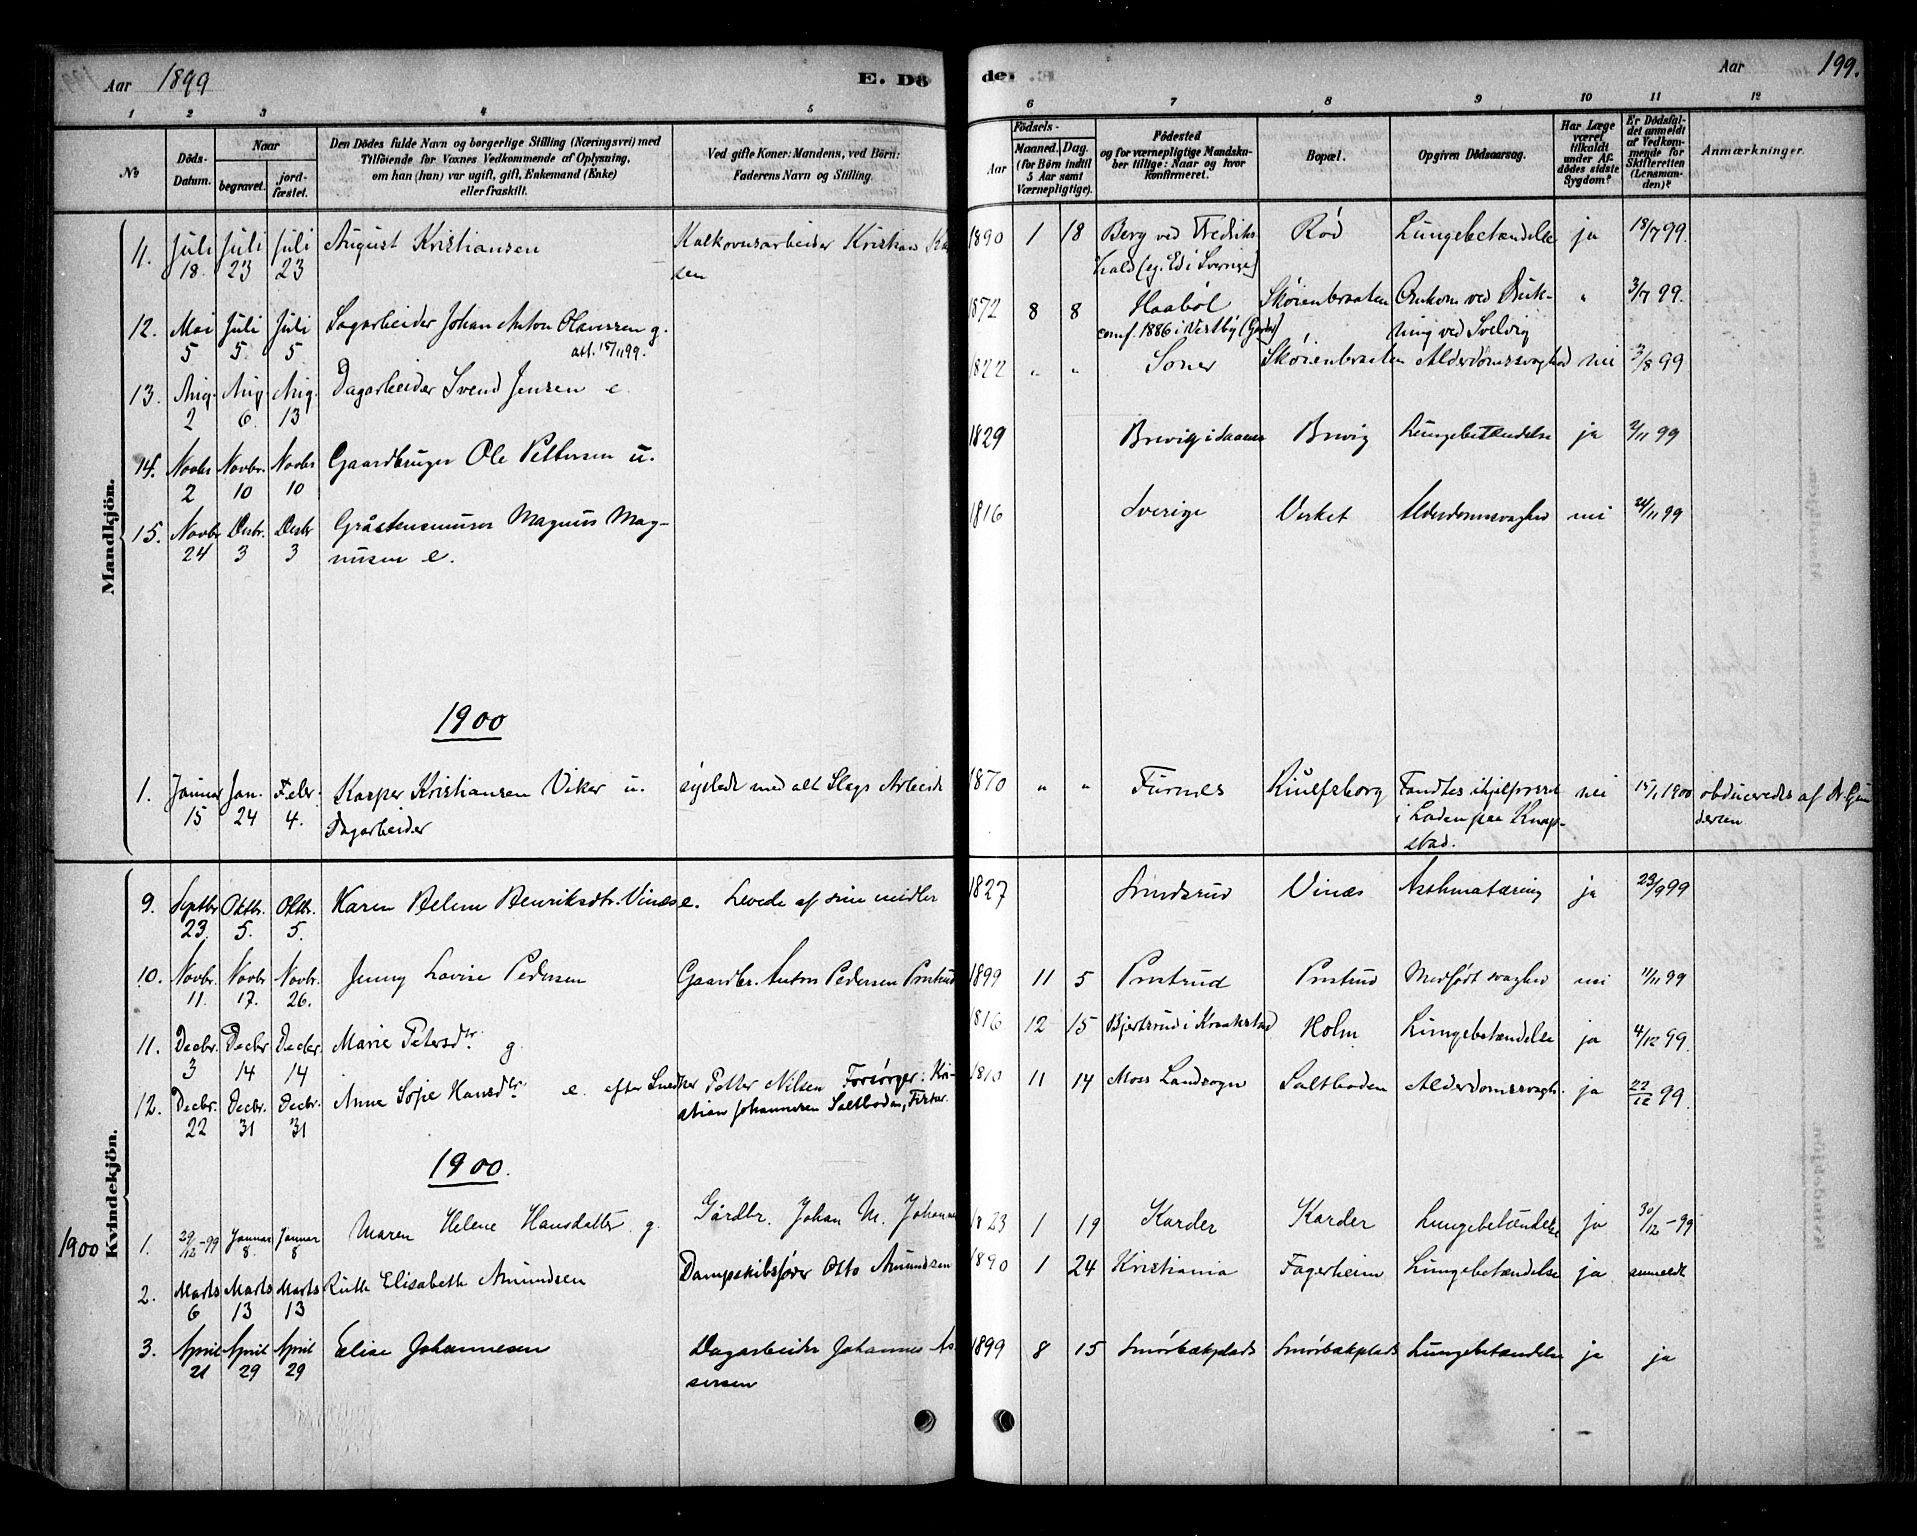 Aar 1899 E. Dö
1 2 3 4 5
№
Döds-Datum.
Naar
begravet.
jord-fæstet.
Den Dödes fulde Navn og borgerlige Stilling (Næringsvei) med
Tilföiende for Voxnes Vedkommende af Oplysning,
om han (hun) var ugift, gift, Enkemand (Enke)
eller fraskilt.
Ved gifte Koner: Mandens, ved Börn:
Faderens Navn og Stilling.
Mandkjön.
11. Juli 18. Juli 23 Juli 23 August Kristiansen Kalkovnsarbeider Kristian
sen
12. Mai 5 Juli 5. Juli 5 Sagarbeider Johan Anton Olaussen g.
att. 15/11 99.
13. Aug. 2 Aug. 6. Aug. 13 Dagarbeider Svend Jensen e
14. Novbr 2 Novbr. 10 Novbr 10 Gaardbruger Ole Pettersen u.
15. Novbr 24 Desbr. 3 Desbr 3 Gråstensmurer Magnus Mag-
nusen e.
1900
1. Januar 15 Jan. 24 Febr. 4. Kasper Kristiansen Viker u. syslede med alt Slags Arbeide
Dagarbeider
Kvindekjön.
9. Septbr 23. Oktbr. 5. Oktbr. 5. Karen Helene Henriksdtr. Vinæs e. Levede af sine midler
10. Novbr. 11. Novbr 17. Novbr. 26. Jenny Lovise Pedersen Gaardbr. Anton Pedersen Prestrud
11. Decbr. 3 Decbr 14 Decbr. 14 Marie Petersdtr. g.
12. Decbr. 22 Decbr. 31 Decbr. 31 Anne Sofie Hansdtr. e. efter Snedker Petter Nilsen Forsørger: Kri-
stian Johannesen Saltboden, Fisker.
1900.
1900 1. 29/12-99 Januar 8. Januar 8 Maren Helene Hansdatter g. Gårdbr. Johan M. Johanne
2. Marts 6 Marts 13 Marts 13 Ruth Elisabeth Amundsen Dampskibsfører Otto Amundsen
3. April 21 April 29 April 29 Elise Johannesen Dagarbeider Johannes As
sersen
de. Aar 199.
6 7 8 9 10 11 12
Födsels-
Aar
Maaned. Dag.
(for Börn indtil
5 Aar samt
Værnepligtige).
Födested
og for værnepligtige Mandska-
ber tillige: Naar og hvor
Konfirmeret.
Bopæl.
Opgiven Dödsaarsag.
Har Læge
været
tilkaldt
under Af-
dödes sidste
Sygdom?
Er Dödsfal-
det anmeldt
af Vedkom-
mende for
Skifteretten
(Lensman-
den)?
Anmærkninger.
1890 1 18 Berg ved Fredriks- Rød Lungebetændelse ja 18/7 99.
hald (eg. Ed i Sverige)
1872 8 8 Haabøl Skøienbraaten Omkom ved Druk- " 3/7 99.
conf. 1886 i Vestby (Garder) ning ved Svelvig
1822 " " Soner Skøienbraaten Alderdomssvaghed nei 3/8 99
1829 Brevig i Saaner Brevig Lungebetændelse ja 2/11 99
1816 Sverige Verket Alderdomssvaghed nei 24/11 99
1870 " " Furnes Kjulfsborg Fandtes ihjelfrosset nei 15/1 1900 obduceredes af Dr. Gun
i Laden paa Knap- dersen
stad.
1827 Sundsrud Vinæs Asthmatæring ja 23/9 99
1899 11 5 Prestrud Prestrud Medfødt svaghed nei 11/11 99
1816 12 15 Bjertsrud i Kraakstad Holm Lungebetændelse ja 4/12 99.
1810 11 14 Moss Landsogn Saltboden Alderdomssvagh. ja 22/12 99.
1823 1 19 Karder Karder Lungebetændelse ja 30/12-99
1890 1 24 Kristiania Fagerheim Lungebetændelse ja anmeldt
1899 8 15 Smørbækplads Smørbækplads Lungebetændelse ja ja